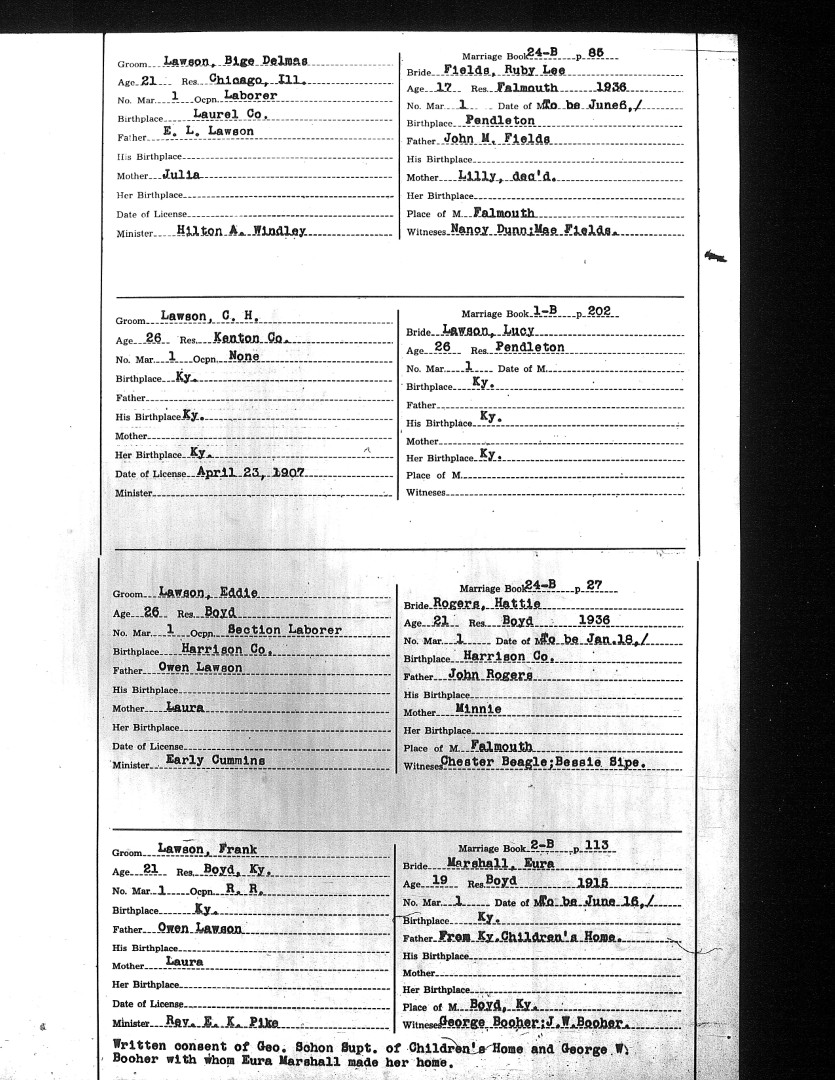 Groom Lawson, Bige Delmas
Age 21 Res. Chicago, Ill.
No. Mar. 1 Ocpn. Laborer
Birthplace Laurel Co.
Father E. L. Lawson
His Birthplace
Mother Julia
Her Birthplace
Date of License
Minister Hilton A. Windley
Marriage Book 24-B p. 85
Bride Fields, Ruby Lee
Age 17 Res. Falmouth 1936
No. Mar. 1 Date of M. To be June6,/
Birthplace Pendleton
Father John M. Fields
His Birthplace
Mother Lilly, dec'd.
Her Birthplace
Place of M. Falmouth
Witneses Nancy Dunn;Mae Fields.
Groom Lawson, C. H.
Age 26 Res. Kenton Co.
No. Mar. 1 Ocpn. None
Birthplace Ky.
Father
His Birthplace Ky.
Mother
Her Birthplace Ky.
Date of License April 23, 1907
Minister
Marriage Book 1-B p. 202
Bride Lawson, Lucy
Age 26 Res. Pendleton
No. Mar. 1 Date of M.
Birthplace Ky.
Father
His Birthplace Ky.
Mother
Her Birthplace Ky.
Place of M.
Witneses
Groom Lawson, Eddie
Age 26 Res. Boyd
No. Mar. 1 Ocpn. Section Laborer
Birthplace Harrison Co.
Father Owen Lawson
His Birthplace
Mother Laura
Her Birthplace
Date of License
Minister Early Cummins
Marriage Book 24-B p. 27
Bride Rogers, Hattie
Age 21 Res. Boyd 1936
No. Mar. 1 Date of M. To be Jan.18,/
Birthplace Harrison Co.
Father John Rogers
His Birthplace
Mother Minnie
Her Birthplace
Place of M. Falmouth
Witneses Chester Beagle;Bessie Sipe.
Groom Lawson, Frank
Age 21 Res. Boyd, Ky.
No. Mar. 1 Ocpn. R. R.
Birthplace Ky.
Father Owen Lawson
His Birthplace
Mother Laura
Her Birthplace
Date of License
Minister Rev. E. K. Pike
Marriage Book 2-B p. 113
Bride Marshall, Eura
Age 19 Res. Boyd 1915
No. Mar. 1 Date of M. To be June 16,/
Birthplace Ky.
Father From Ky.Children's Home.
His Birthplace
Mother
Her Birthplace
Place of M. Boyd, Ky.
Witneses George Booher;J.W.Booher.
Written consent of Geo. Sohon Supt. of Children's Home and George W.
Booher with whom Eura Marshall made her home.